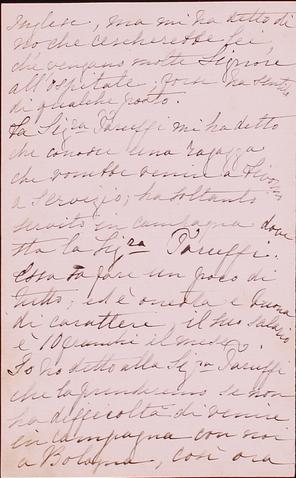 Inglese, ma mi ha detto di
no che cercherebbe lei,
che vengano molte Signore
all'Ospitale, forse ha sentito
di qualche posto.
La Sigra Taruffi mi ha detto
che conosce una ragazza
che vorrebbe venire a
a servizio; ha soltanto
servito in campagna dove
sta la Sigra Taruffi.
Cosa sa fare un poco di
tutto, ed è onesta e buona
di carattere, il suo salario
è 10 franchi il mese.
Io ho detto alla Sigra Taruffi
che la prenderemo se non
ha difficoltà di venire
in campagna con noi
a Bologna, così ora